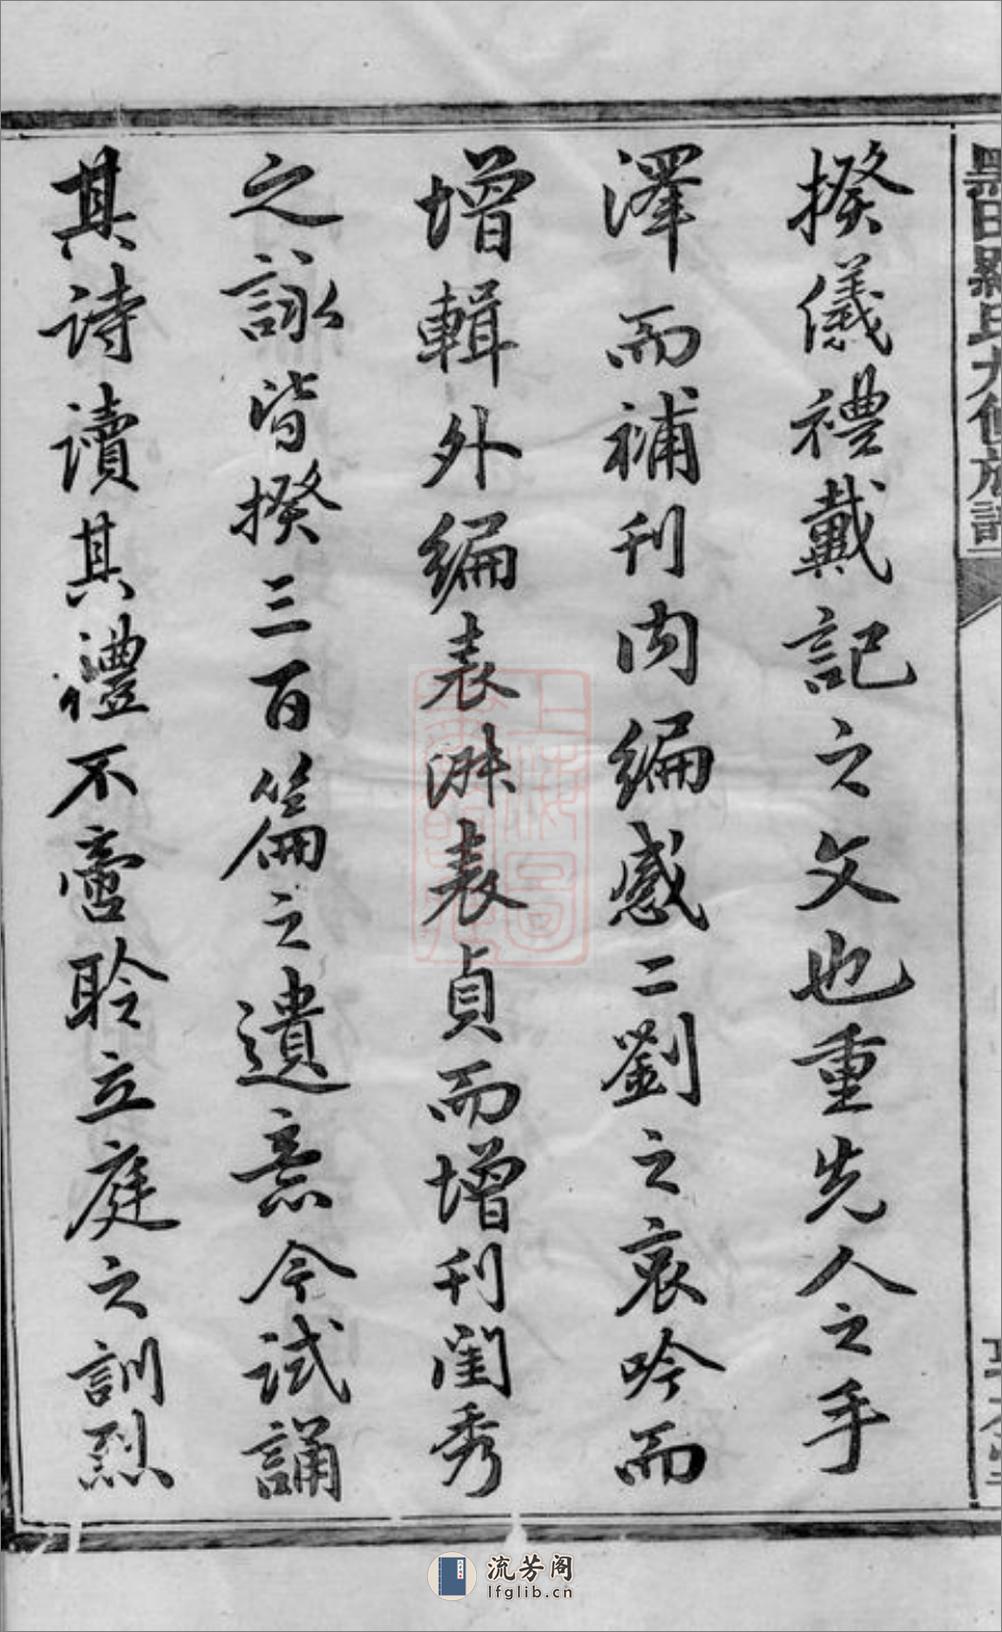 揆儀禮戴記之文也重先人之手
澤而補刊内編感二劉之哀吟而
增輯外編表淑表貞而增刊閨秀
之詠皆揆三百篇之遺意今試誦
其詩讀其禮不啻聆立庭之訓烈
流芳阁
lfglib.cn